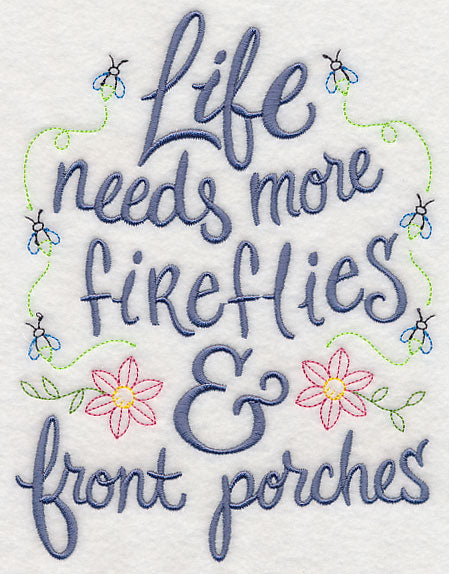 Life
needs more
fireflies
&
front porches